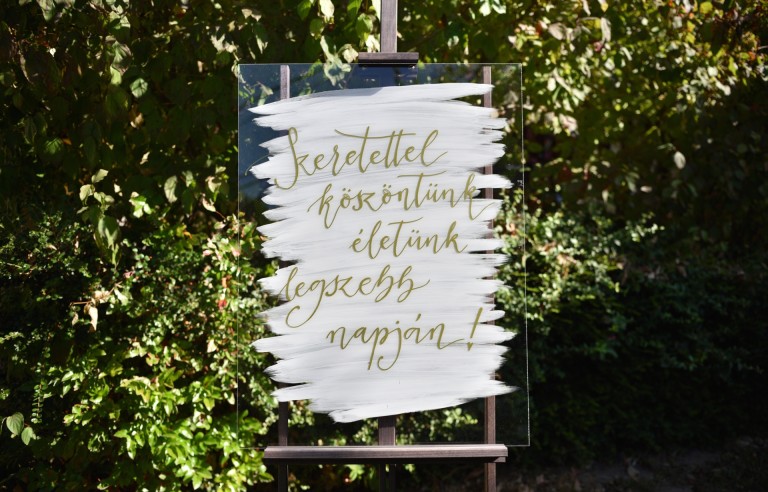 Szeretettel
köszöntünk
életünk
legszebb
napján!